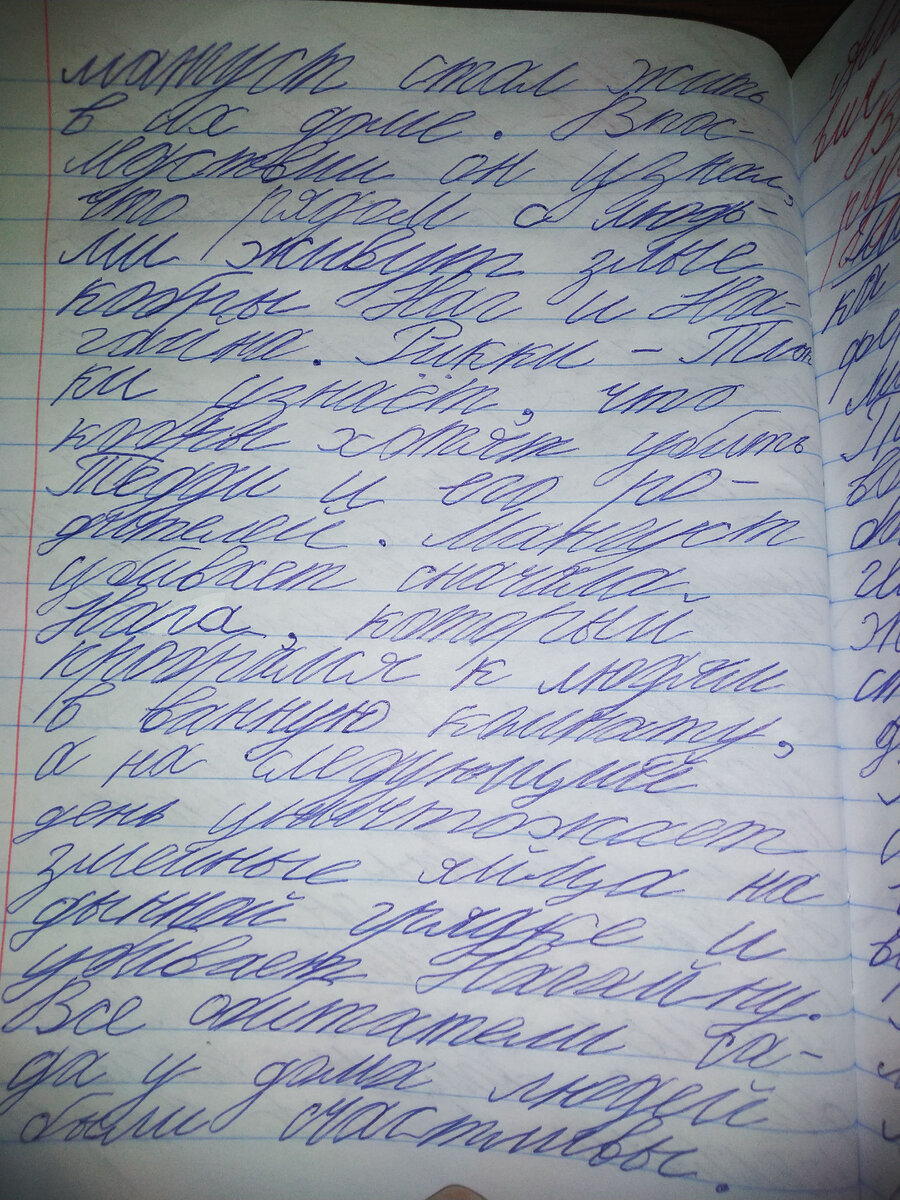 мангуст стал жить
в их доме. Впос-
ледствии он узнал,
что рядом с людь-
ми живут злые
кобры Наг и На-
гайна. Рикки - Тик
ки узнаёт, что
кобры хотят убить
Тедди и его ро-
дителей. Мангуст
убивает сначала
Нага, который
пробрался к людям
в ванную комнату,
а на следующий
день уничтожает
змеиные яйца на
дынной грядке и
убивает Нагайну.
Все обитатели са-
да у дома людей
были счастливы.